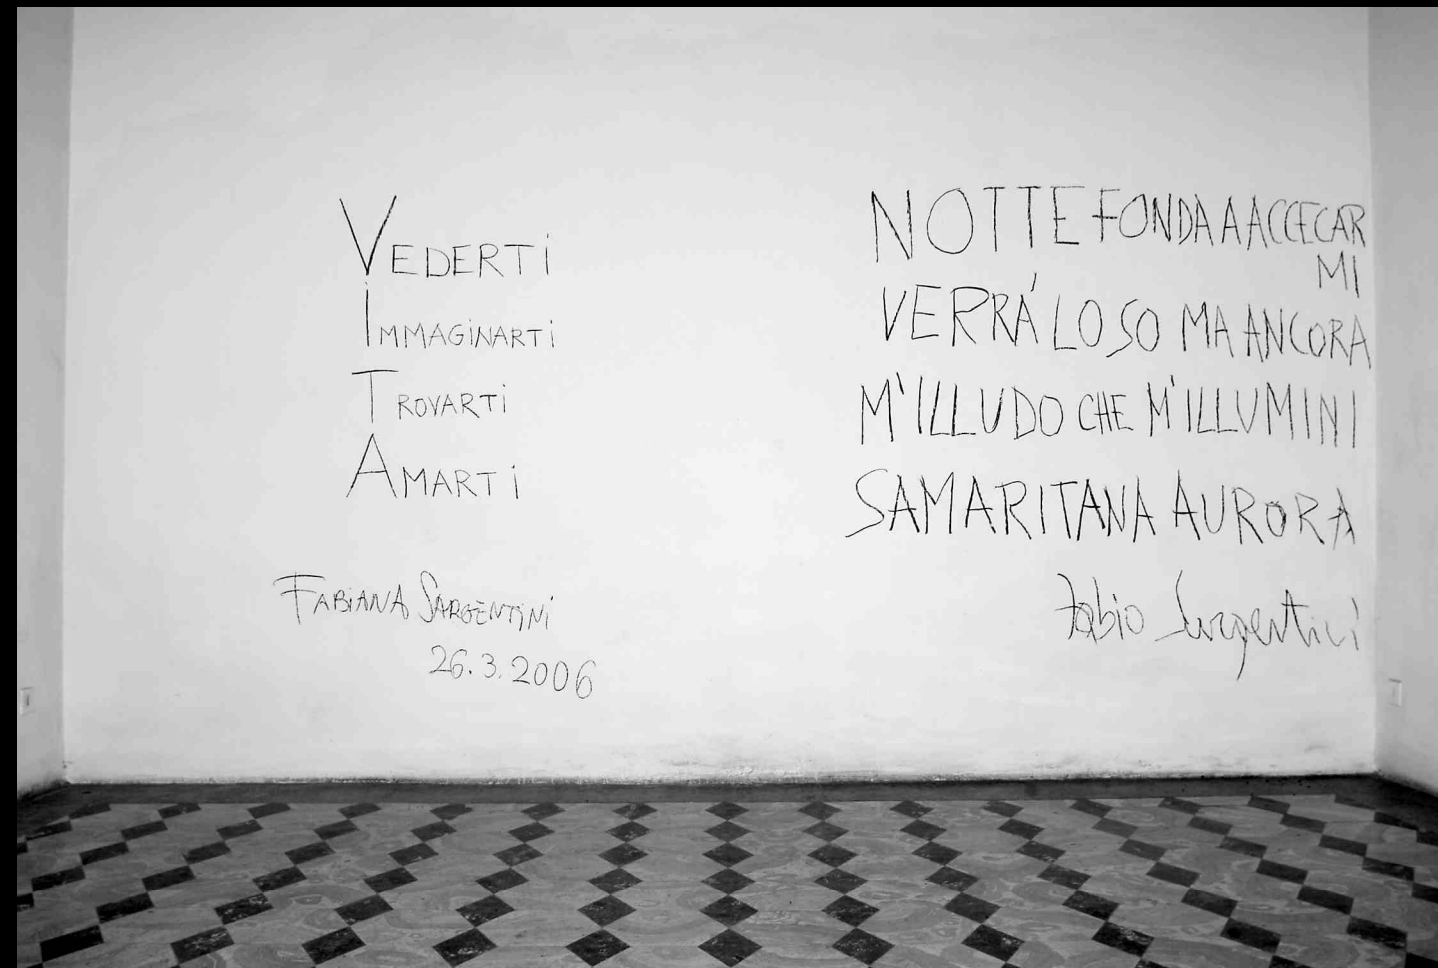 VEDERTi
IMMAGiNARTi
TROVARTi
AMARTi
FABiANA SARGENTiNi
26.3.2006
NOTTE FONDA A ACCECAR
MI
VERRÁ LO SO MA ANCORA
M'ILLUDO CHE M'ILLUMINI
SAMARITANA AURORA
Fabio Sargentini